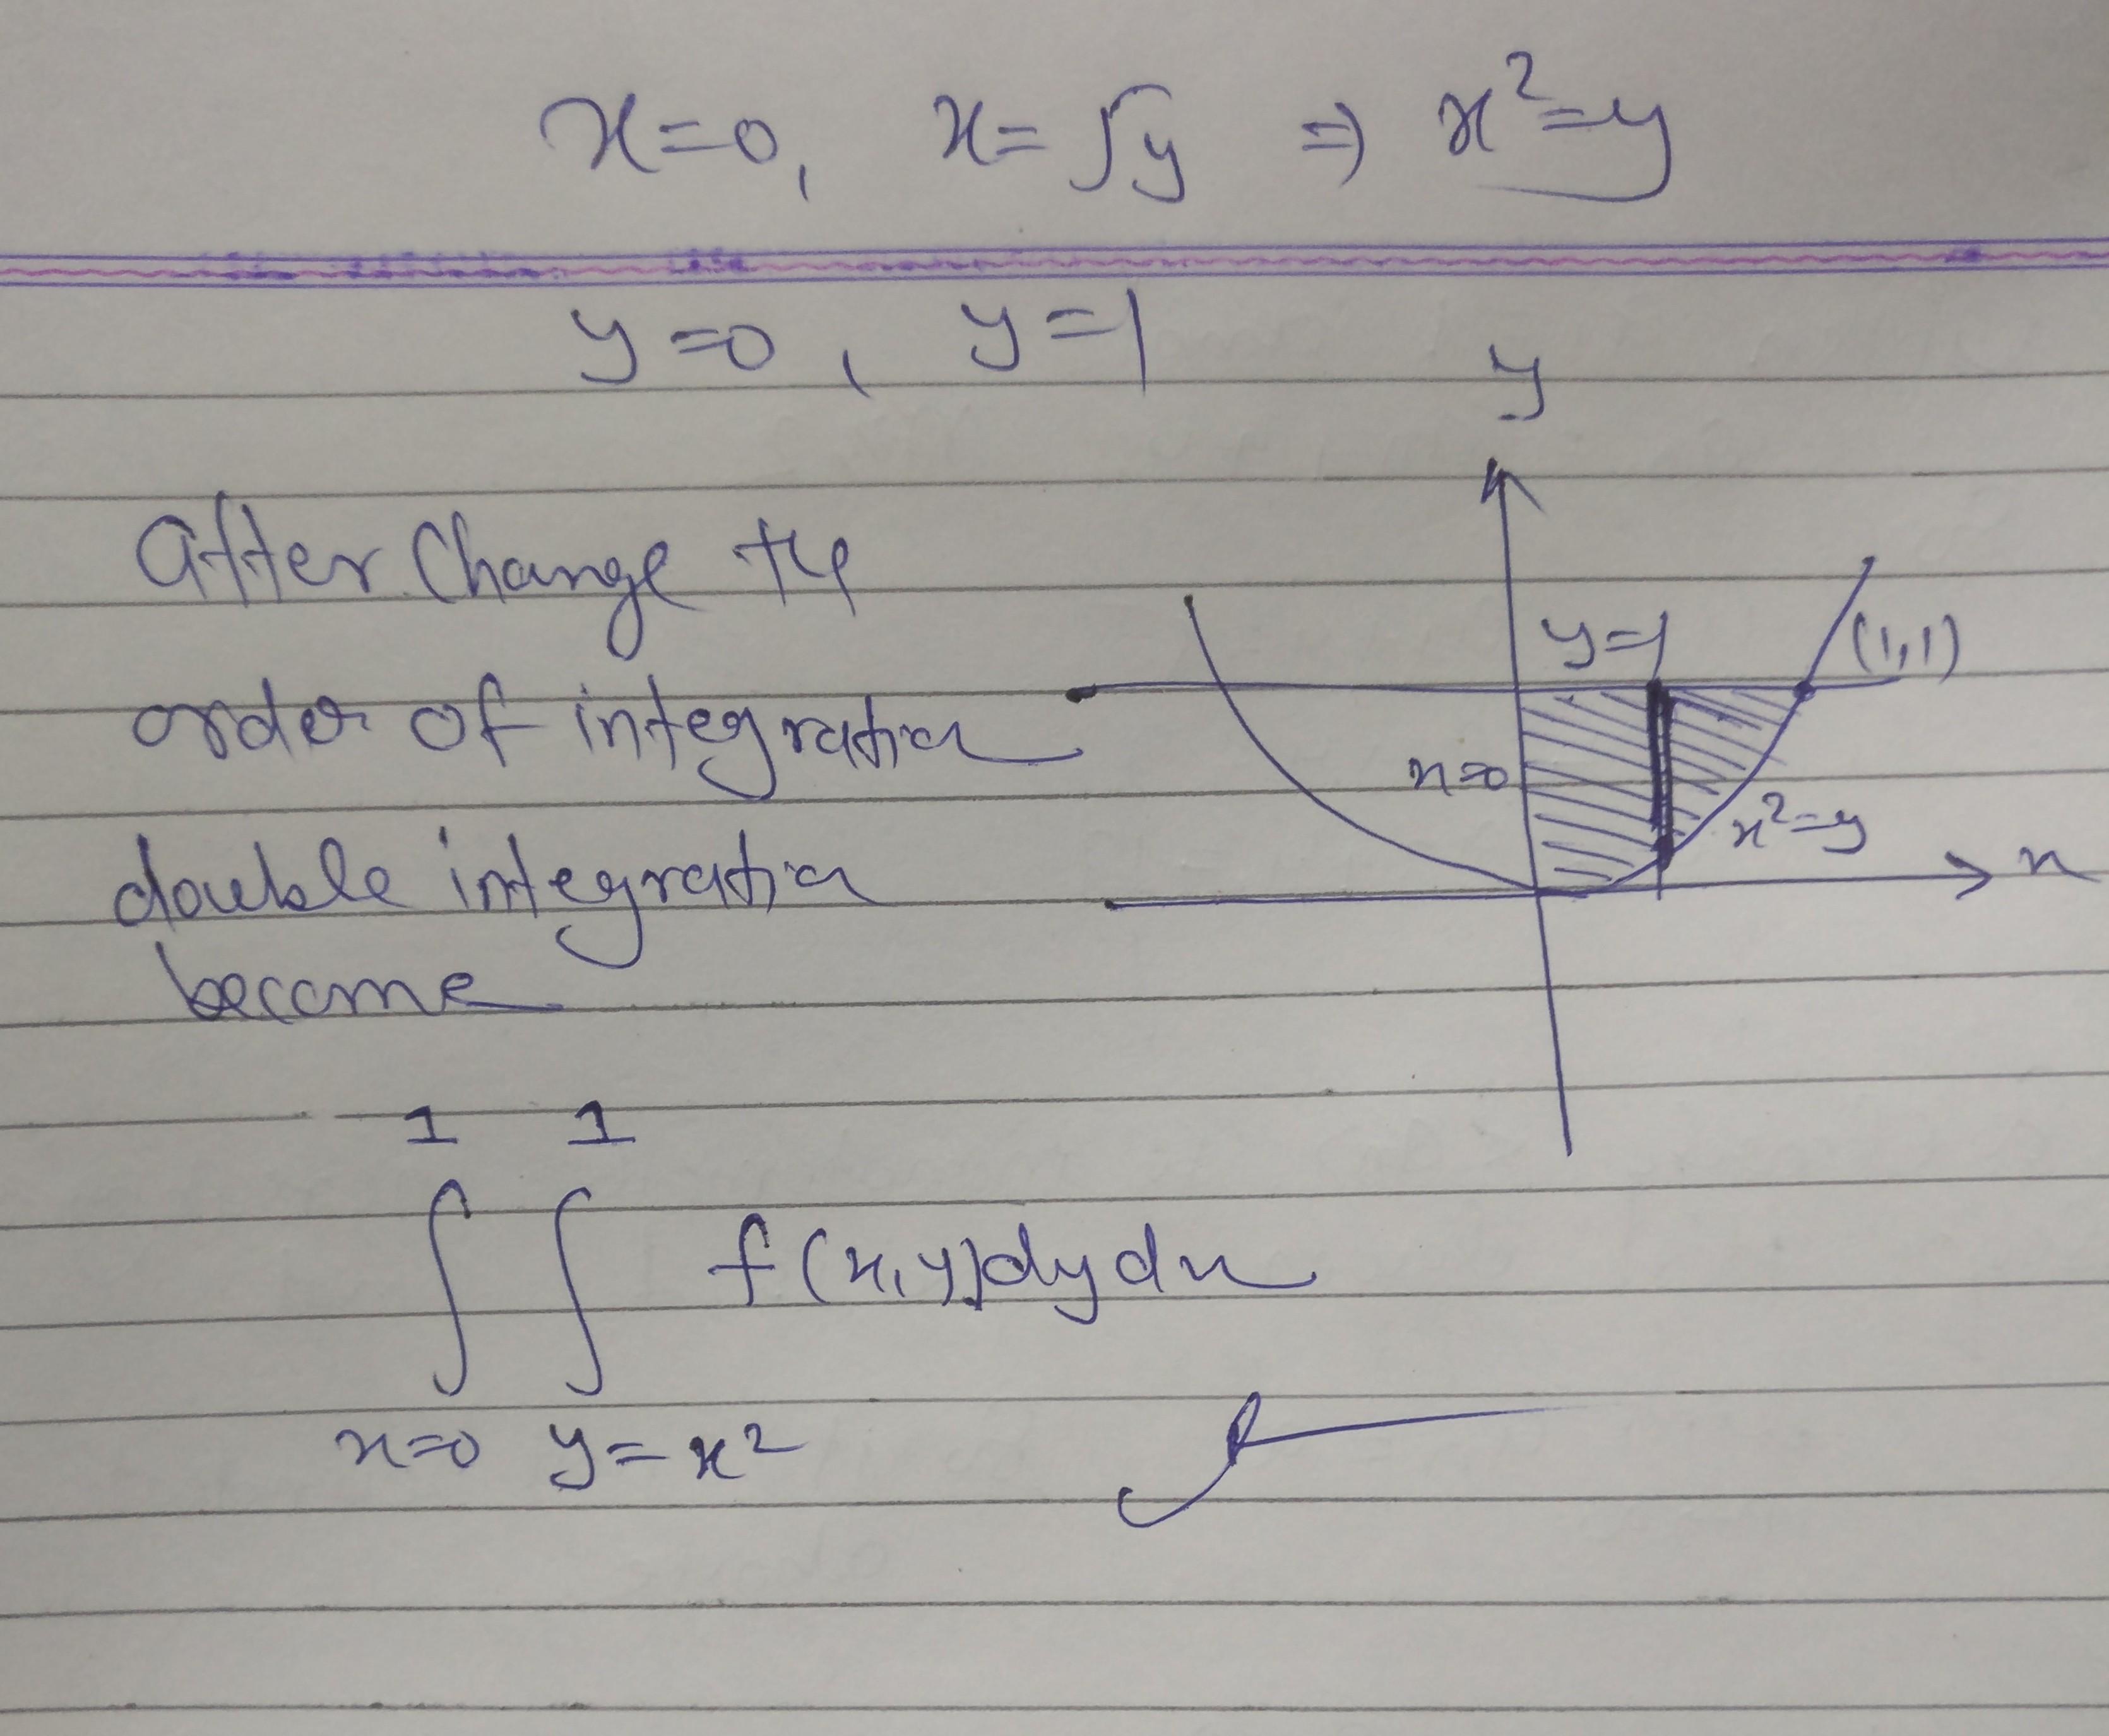 x=0, x=√y ⇒ x²=y
y=0, y=1
y
After Change the
order of integration
double integration
become
y=1
(1,1)
x=0
x²=y
x
1 1
∫ ∫ f(x,y)dydx
x=0 y=x²